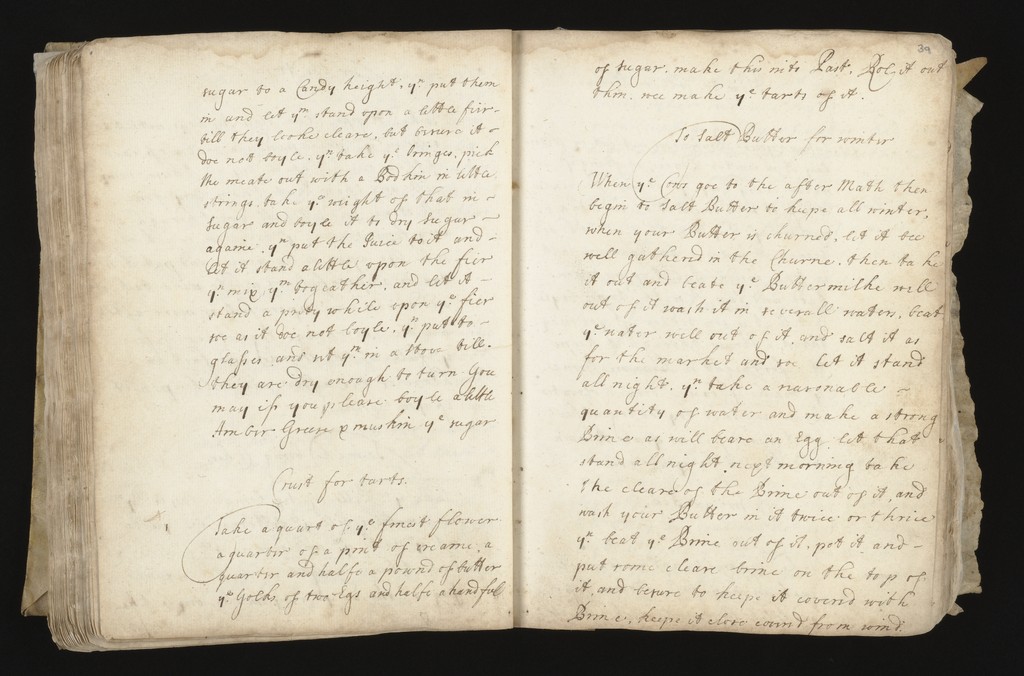 sugar to a Candy height, yn put them
in and let ym stand upon a little fier
till they looke cleare, but besure it
doe not boyle, yn take ye pick
the meate out with a Bodkin in little
strings, take ye weight of that in
sugar and boyle it to dry sugar
againe, yn put the Juice to it and
let it stand a little upon the fier
yn mix ym togeather, and let it
stand a prity while upon ye fier
soe as it doe not boyle, yn put to
glasses and set ym in a stove till
they are dry enough to turn you
may if you please boyle a little
Amber Greese & muskin ye sugar
Crust for tarts.
Take a quart of ye finest flower
a quarter of a pint of creame, a
quarter and halfe a pound of butter
ye yolks of two Egs and halfe a handful
39
of sugar, make this into Past, Role it out
thin, soe make ye tarts of it.
To Salt Butter for winter
When ye Cows goe to the after Math then
begin to salt Butter to keepe all winter,
when your Butter is churned, let it bee
well gathered in the Churne, then take
it out and beate ye Buttermilke well
out of it wash it in severall waters, beat
ye water well out of it, and salt it as
for the market and soe let it stand
all night, yn take a reasonable
quantity of water and make a strong
Brine as will beare an Egg let that
stand all night, next morning take
the cleare of the Brine out of it, and
wash your Butter in it twice or thrice
yn beat ye Brine out of it, pot it and
put some cleare brine on the top of
it, and besure to keepe it coverd with
Brine, keepe it close coverd from wind.